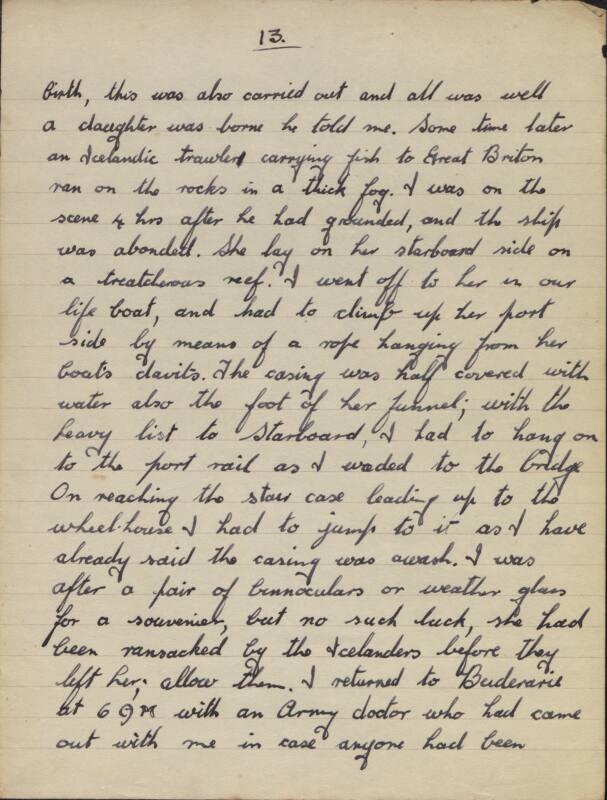 13.
birth, this was also carried out and all was well
a daughter was borne he told me. Some time later
an Icelandic trawler carrying fish to Great Briton
ran on the rocks in a thick fog. I was on the
scene 4 hrs after he had grounded, and the ship
was abonded. She lay on her starboard side on
a treatcherous reef. I went off to her in our
life boat, and had to climb up her port
side by means of a rope hanging from her
boat's davits. The casing was half covered with
water also the foot of her funnel; with the
heavy list to starboard, I had to hang on
to the port rail as I waded to the bridge
On reaching the stair case leading up to the
wheel-house I had to jump to it as I have
already said the casing was awash. I was
after a pair of binnoculars or weather glass
for a souvenier, but no such luck, she had
been ransacked by the Icelanders before they
left her; allow them. I returned to Buderarie
at 6 PM with an Army doctor who had came
out with me in case anyone had been